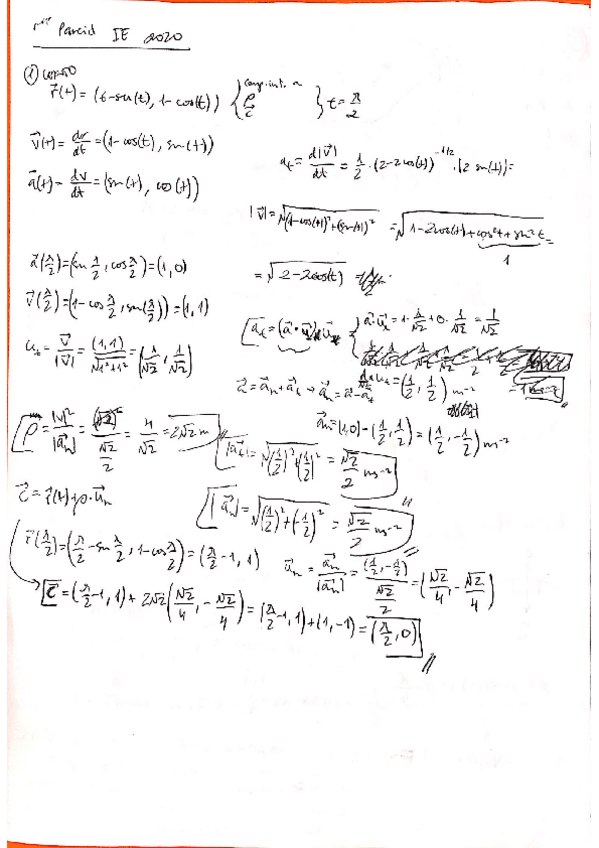 1er Parcial IE 2020
r⃗(t) = (t-sen(t), 1-cos(t)) { comp. int. a ρ c⃗ } t = π/2
v⃗(t) = dr/dt = (1-cos(t), sen(t))
a⃗(t) = dv/dt = (sen(t), cos(t))
a_t = d|v⃗|/dt = 1/2 · (2-2cos(t))^(-1/2) · (2 sen(t)) =
|v⃗| = √((1-cos(t))²+(sen(t))²) = √(1-2cos(t)+cos²t+sen²t) =
1
= √(2-2cos(t))
a⃗(π/2) = (sen π/2, cos π/2) = (1,0)
v⃗(π/2) = (1-cos π/2, sen(π/2)) = (1,1)
u_t = v⃗/|v⃗| = (1,1)/√(1²+1²) = (1/√2, 1/√2)
a⃗_t = (a⃗·u⃗_t)·u⃗_t = { a⃗·u⃗_t = 1·1/√2 + 0·1/√2 = 1/√2
a⃗_t = (1/2, 1/2) ms⁻²
a⃗ = a⃗_n + a⃗_t → a⃗_n = a⃗ - a⃗_t
a⃗_n = (1,0) - (1/2, 1/2) = (1/2, -1/2) ms⁻²
ρ = |v|²/|a⃗_n| = (√2)²/(√2/2) = 4/√2 = 2√2 m
|a⃗_t| = √((1/2)²+(1/2)²) = √2/2 ms⁻²
|a⃗_n| = √((1/2)²+(-1/2)²) = √2/2 ms⁻²
c⃗ = r⃗(t) + ρ·u⃗_n
r⃗(π/2) = (π/2 - sen π/2, 1-cos π/2) = (π/2 - 1, 1)
u⃗_n = a⃗_n/|a⃗_n| = (1/2, -1/2)/(√2/2) = (√2/4, -√2/4)
c⃗ = (π/2 - 1, 1) + 2√2(√2/4, -√2/4) = (π/2 - 1, 1) + (1, -1) = (π/2, 0)